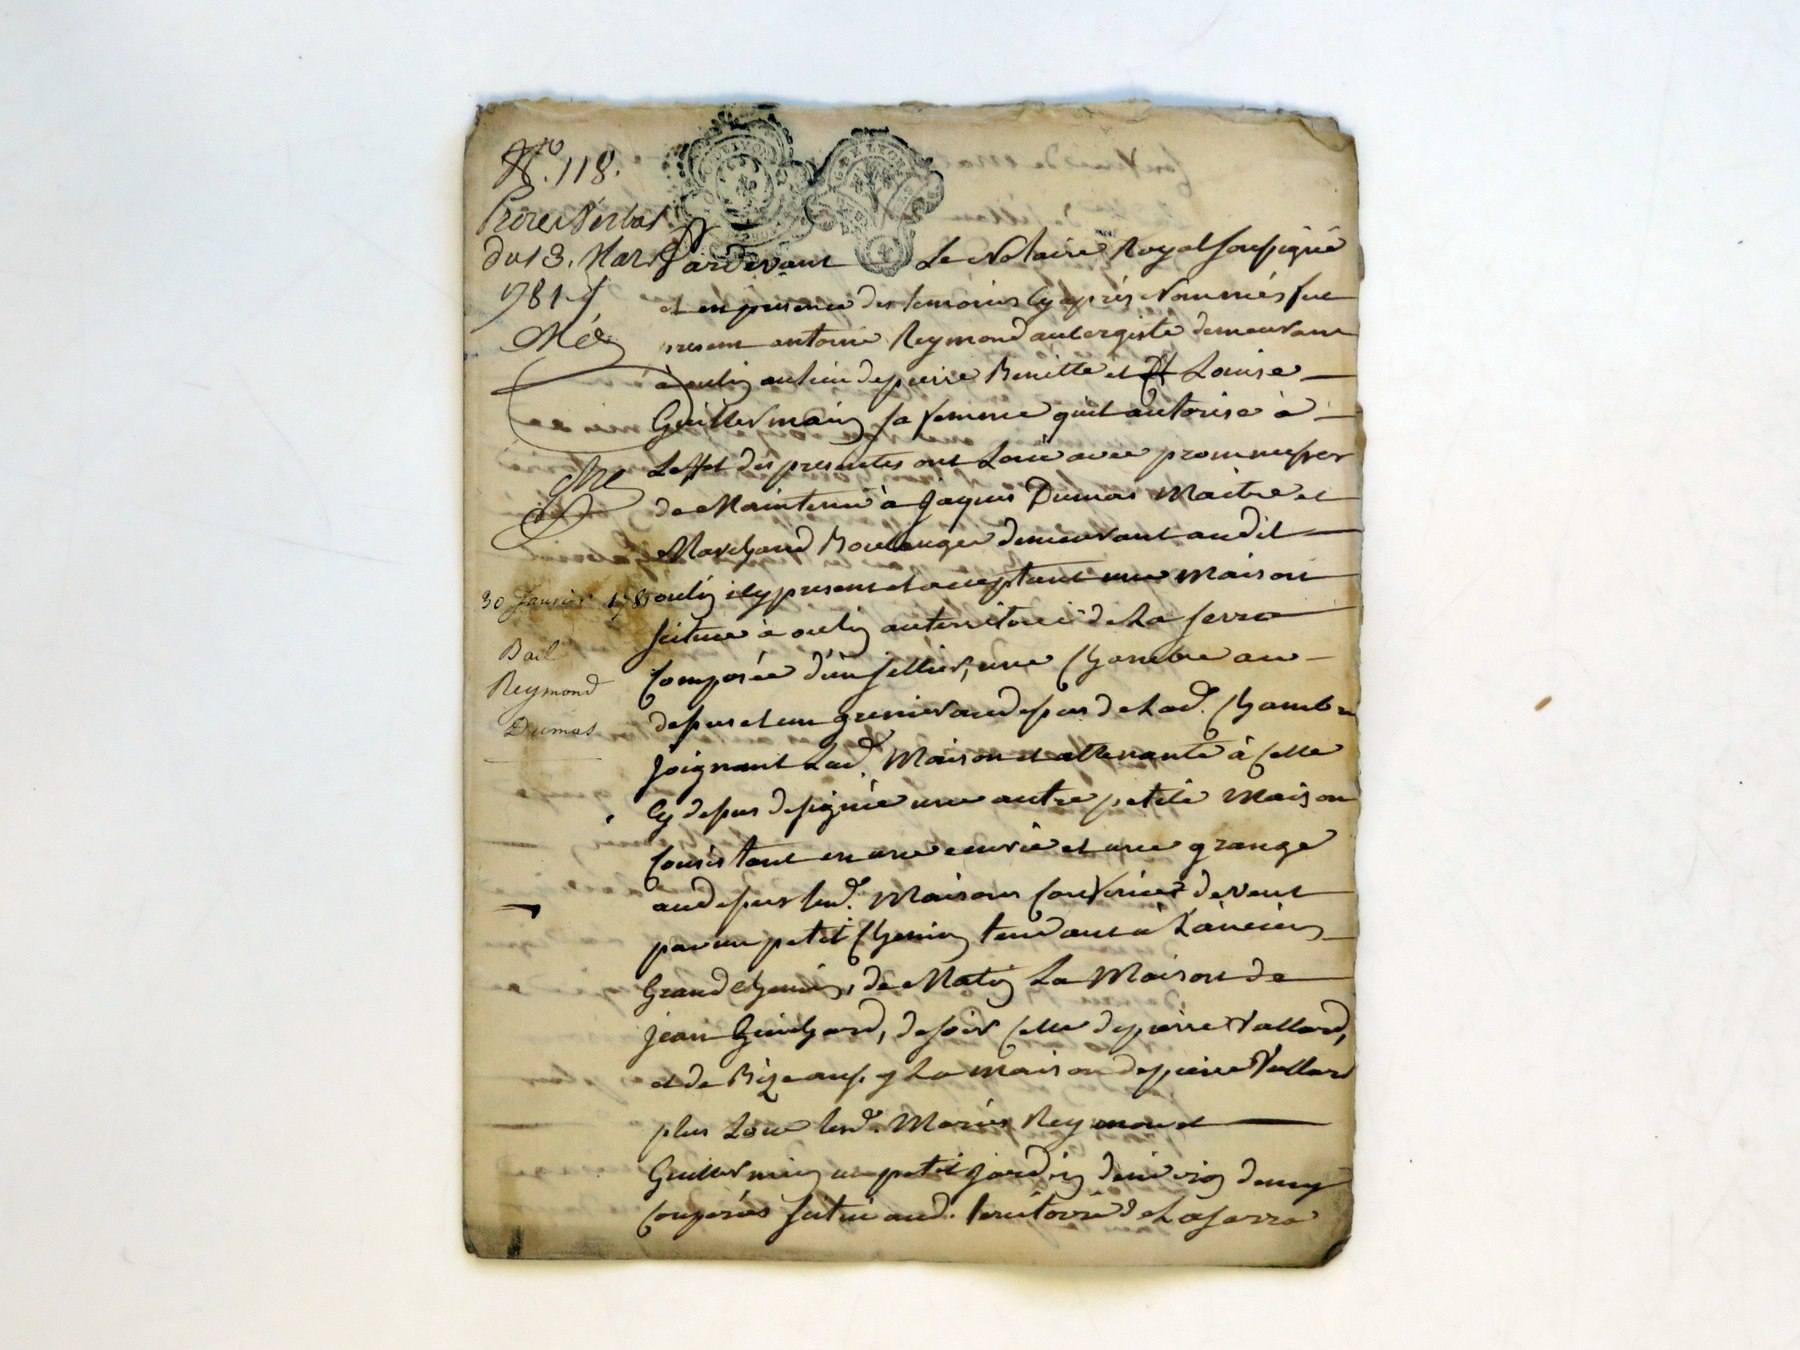 No. 118.
Procès Verbal
du 13. Mars
1781
30 Janvier 178
Bail
Reymond
Dumas
Pardevant Le Notaire Royal soussigné
et en presence des temoins cy après Nommés fut
present antoine Reymond aubergiste demeurant
à oulin au lieu de pierre Benitte et Louise
Guillermain sa femme quil autorise à
Leffet des presentes ont Loué avec promesse
de Maintenir à Jaques Dumas Maitre et
Marchand Boulanger demeurant audit
oulin icy present et acceptant une maison
scitue à oulin au territoire de La serra
Composée d'un sellier, une Chambre au
dessus et un grenier au dessus de Lad. Chambre
Joignant Lad. Maison et attenante à Celle
Cy dessus designée une autre petite Maison
Consistant en une ecurie et une grange
au dessus lesd. Maisons Confinées devent
par un petit Chemin tendant à L'ancien
Grand Chemin, de Matin La Maison de
Jean Guichard, de soir Celle de pierre Vallard,
et de Bize aussy La maison de pierre Vallard
plus Loue lesd. Mariés Reymond et
Guillermain un petit jardin d'environ demy
Couperée scitué aud. territoire de La serra